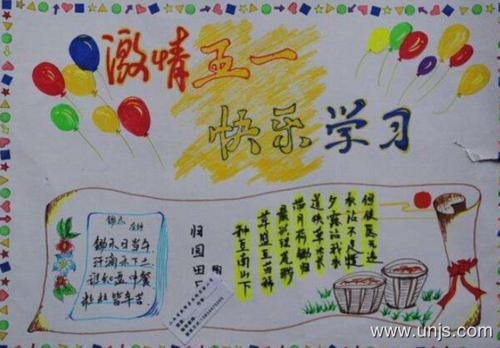 激情五一
快乐学习
锄禾
锄禾日当午
汗滴禾下土
谁知盘中餐
粒粒皆辛苦
归园田
种豆南山下
草盛豆苗稀
晨兴理荒秽
带月荷锄归
道狭草木长
夕露沾我衣
衣沾不足惜
但使愿无违
www.unjs.com